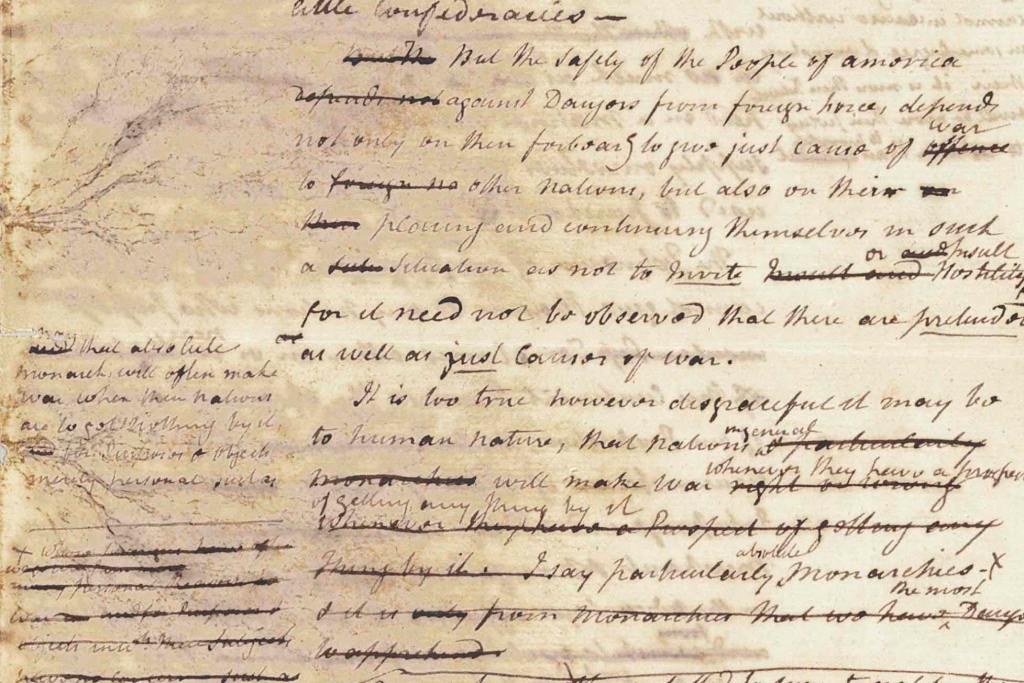 little Confederacies —
But the But the Safety of the People of america
depends not against Dangers from foreign force, depends
not only on their forbearg to give just cause of offence
war
to foreign na other nations, but also on their on
their placing and continuing themselves in such
a Situation as not to Invite Insult and Hostility
or and Insult
for it need not be observed that there are pretended
as well as just Causes of war.
It is too true however disgraceful it may be
to human nature, that nations & particularly
in general
monarchies will make war right or wrong
whenever they have a prospect
of getting any thing by it
Whenever they have a Prospect of getting any
thing by it. I say particularly Monarchies
absolute
& it is only from Monarchies that we have Danger
the most
to apprehend
may
and that absolute
monarchs will often make
war when their nations
are to get nothing by it,
for Purposes & objects
merely personal such as
war and for Purposes &
objects their Subjects
have no concern such as